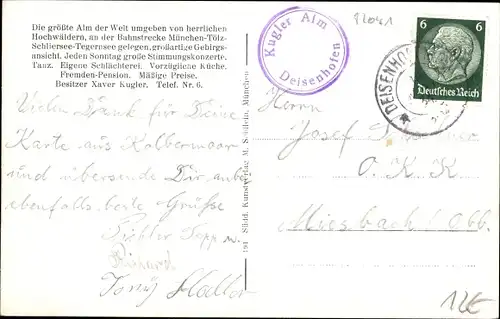 Die größte Alm der Welt umgeben von herrlichen
Hochwäldern, an der Bahnstrecke München-Tölz-
Schliersee-Tegernsee gelegen, großartige Gebirgs-
ansicht. Jeden Sonntag große Stimmungskonzerte.
Tanz. Eigene Schlächterei. Vorzügliche Küche.
Fremden-Pension. Mäßige Preise.
Besitzer Xaver Kugler. Telef. Nr. 6.
Vielen Dank für Deine
Karte aus Kolbermoor
und übersende Dir anbei
ebenfalls beste Grüße
Sepp u.
Richard
191 Südd. Kunstverlag M. München
Kugler Alm
Deisenhofen
6 6
Deutsches Reich
DEISENHO
Herrn
Josef
O. K. K.
Miesbach / Obb.
12€